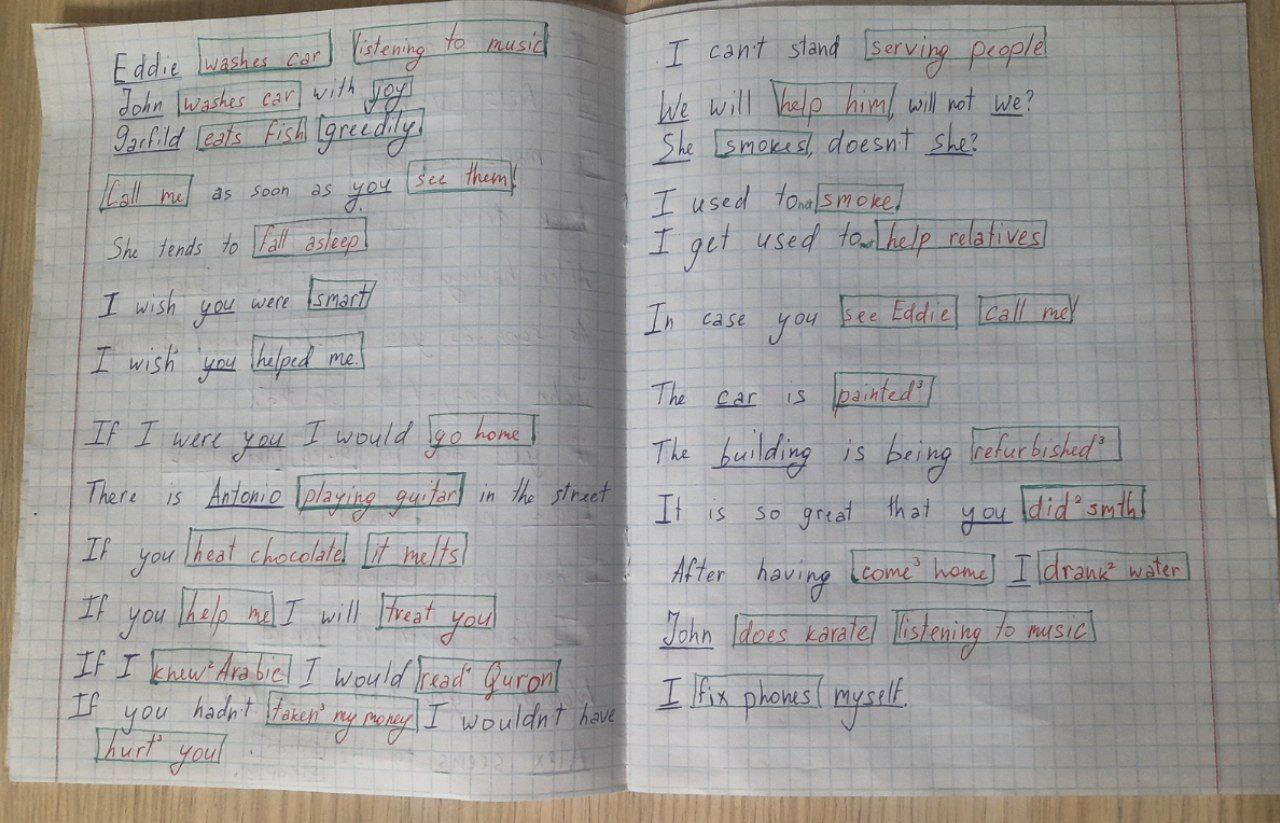 Eddie washes car listening to music
John washes car with joy
Garfild eats fish greedily.
Call me as soon as you see them!
She tends to fall asleep
I wish you were smart
I wish you helped me.
If I were you I would go home
There is Antonio playing guitar in the street
If you heat chocolate it melts
If you help me I will treat you
If I knew² Arabic I would read Quron
If you hadn't taken³ my money I wouldn't have
hurt³ you
I can't stand serving people
We will help him, will not we?
She smokes, doesn't she?
I used to smoke.
I get used to help relatives
In case you see Eddie call me!
The car is painted³
The building is being refurbished³
It is so great that you did² smth
After having come³ home I drank² water
John does karate listening to music
I fix phones myself.